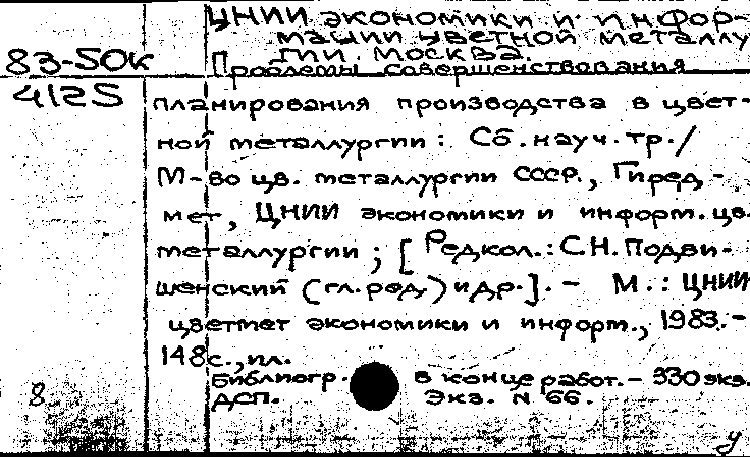 ЦНИИ экономики и инфор-
мации цветной металлу
гии. Москва.
83-50к
Проблемы совершенствования
4125
планирования производства в цвет-
ной металлургии: Сб. науч. тр./
М-во цв. металлургии СССР., Гиред-
мет, ЦНИИ экономики и информ. цв.
металлургии; [Редкол.: С.Н. Подви-
шенский (гл. ред.) и др.]. - М.: ЦНИИ
цветмет экономики и информ., 1983.-
148 с., ил.
Библиогр. в конце работ. - 330 экз.
8.
ДСП. Экз. N 66.
у